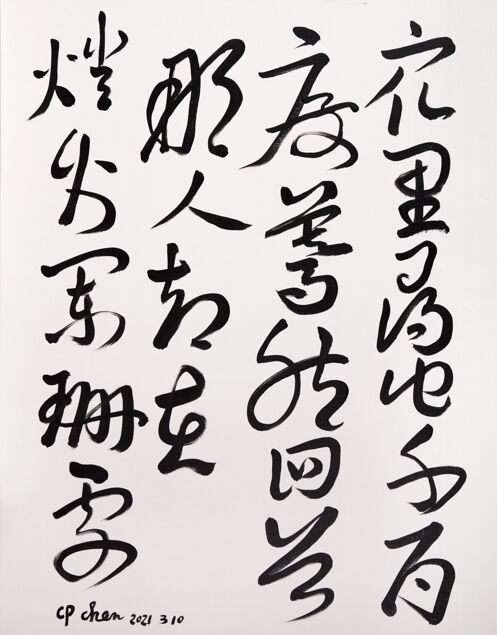 众里尋他千百
度驀然回首
那人却在
燈火闌珊處
CP chen 2021 3 10